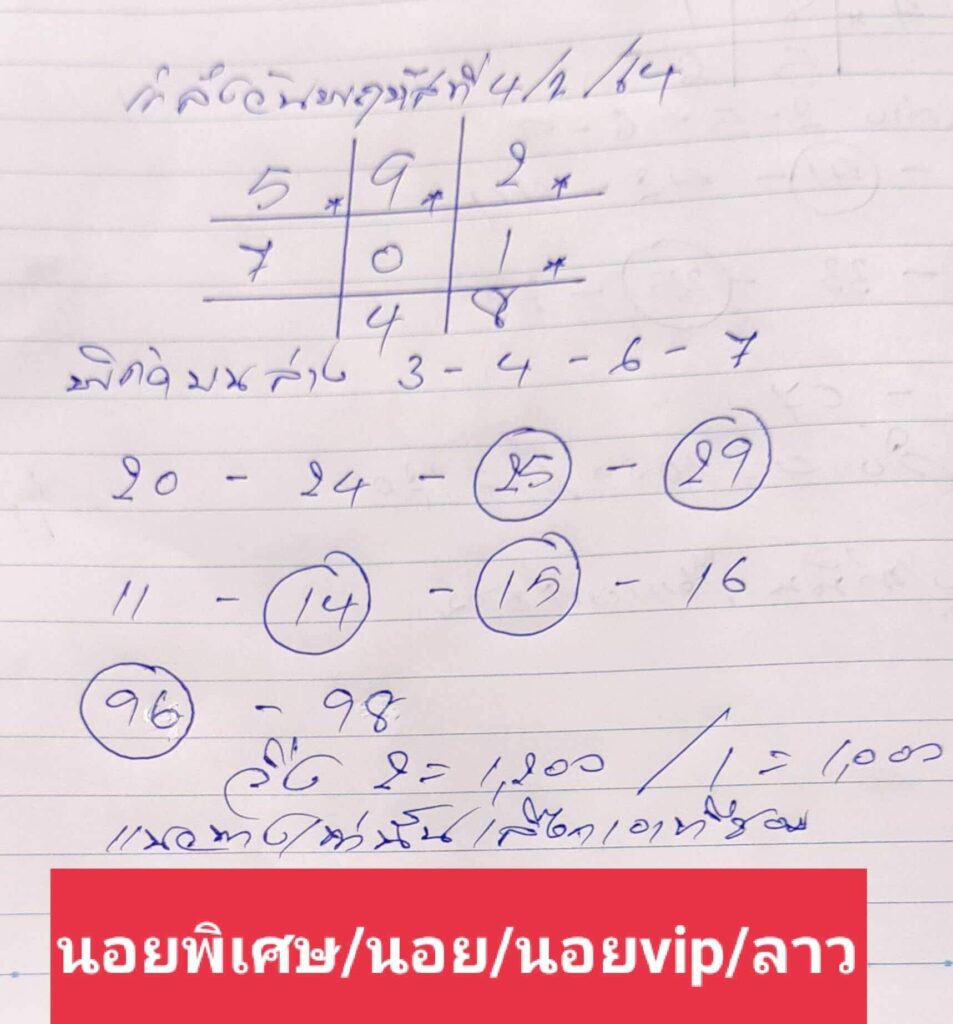 กำลังวันพฤหัสที่ 4/2/64
5 * 9 * 2 *
7 0 1 *
4 8
พิกัดบนล่าง 3 - 4 - 6 - 7
20 - 24 - 25 - 29
11 - 14 - 15 - 16
96 - 98
วิ่ง 2 = 1,200 / 1 = 1,000
แนวทางเท่านั้นเลือกเอาที่ชอบ
นอยพิเศษ/นอย/นอยvip/ลาว